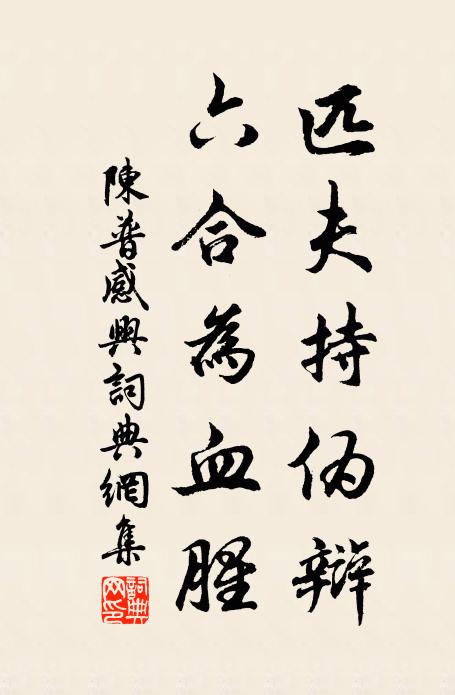 匹夫持伪辩
六合為血腥
陳普感興詞典網集
詞典网印